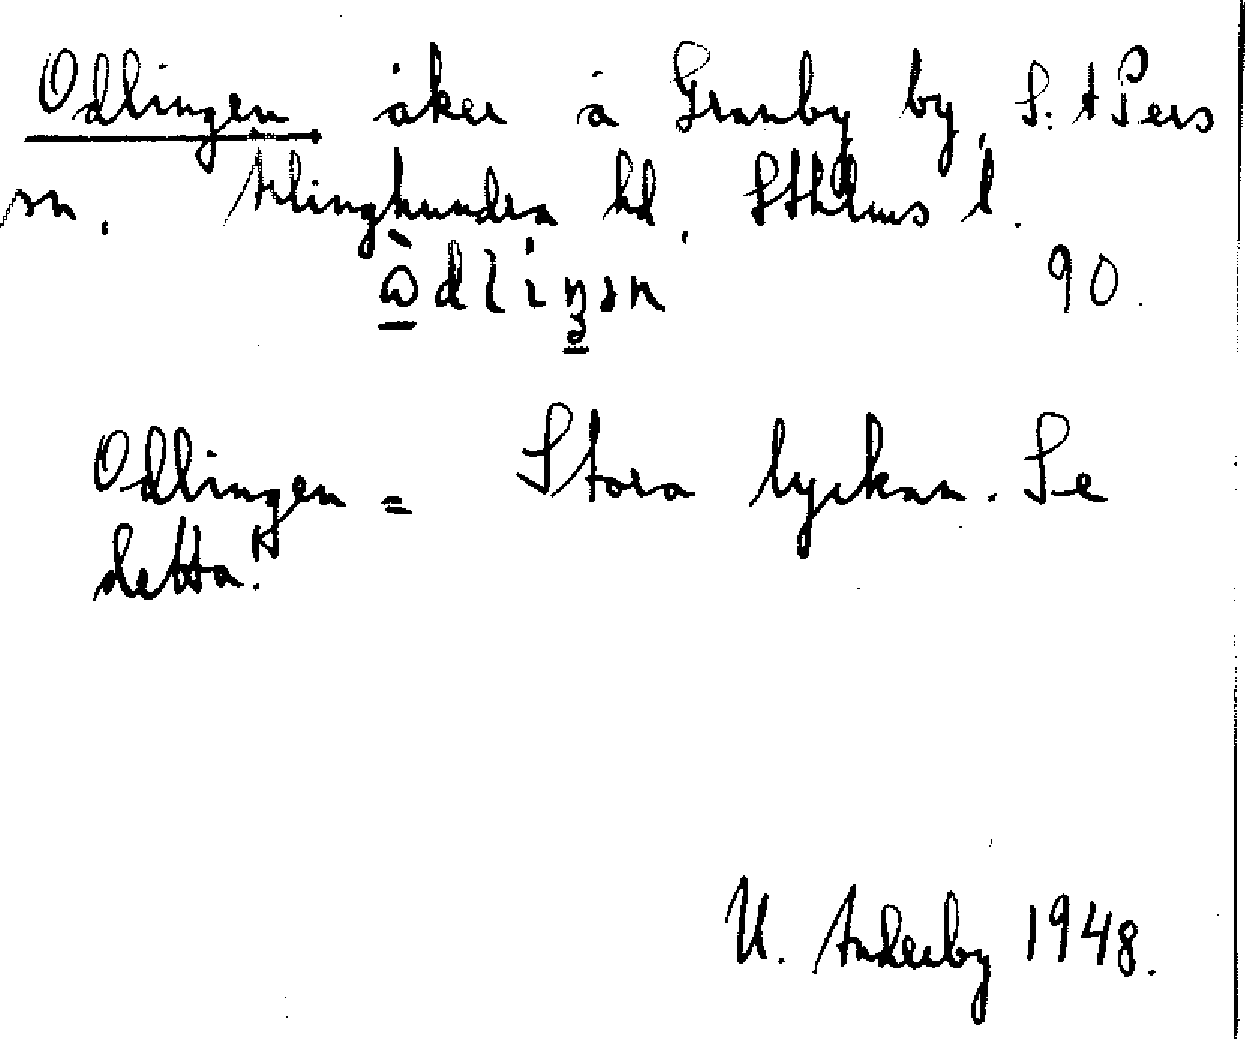 Odlingen åker å Granby by, S:t Pers
sn. Ärlinghundra hd, Sthlms l.
90.
Odlingen = Stora lyckan. Se
detta!
U. Anderby 1948.